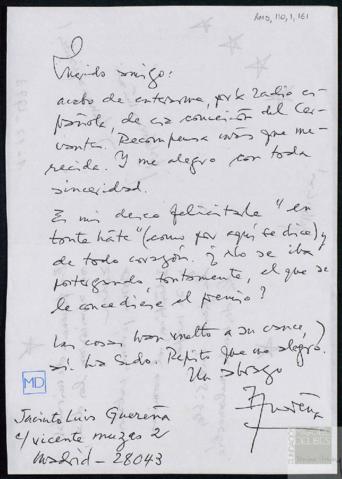 AMD, 110, 1, 161
Querido amigo:
acabo de enterarme, por la radio es-
pañola de la concesión del Cer-
vantes. Recompensa más que me-
recida. Y me alegro con toda
sinceridad.
Es mi deseo felicitarle "en
toute hâte" (como por aquí se dice) y
de todo corazón. ¿No se iba
postergando, tontamente, el que se
le concediese el premio?
Las cosas han vuelto a su cauce, y
así ha sido. Repito que me alegro.
Un abrazo
MD
Jacinto Luis Guereña
c/ Vicente Muzas 2
Madrid - 28043
DELIBES